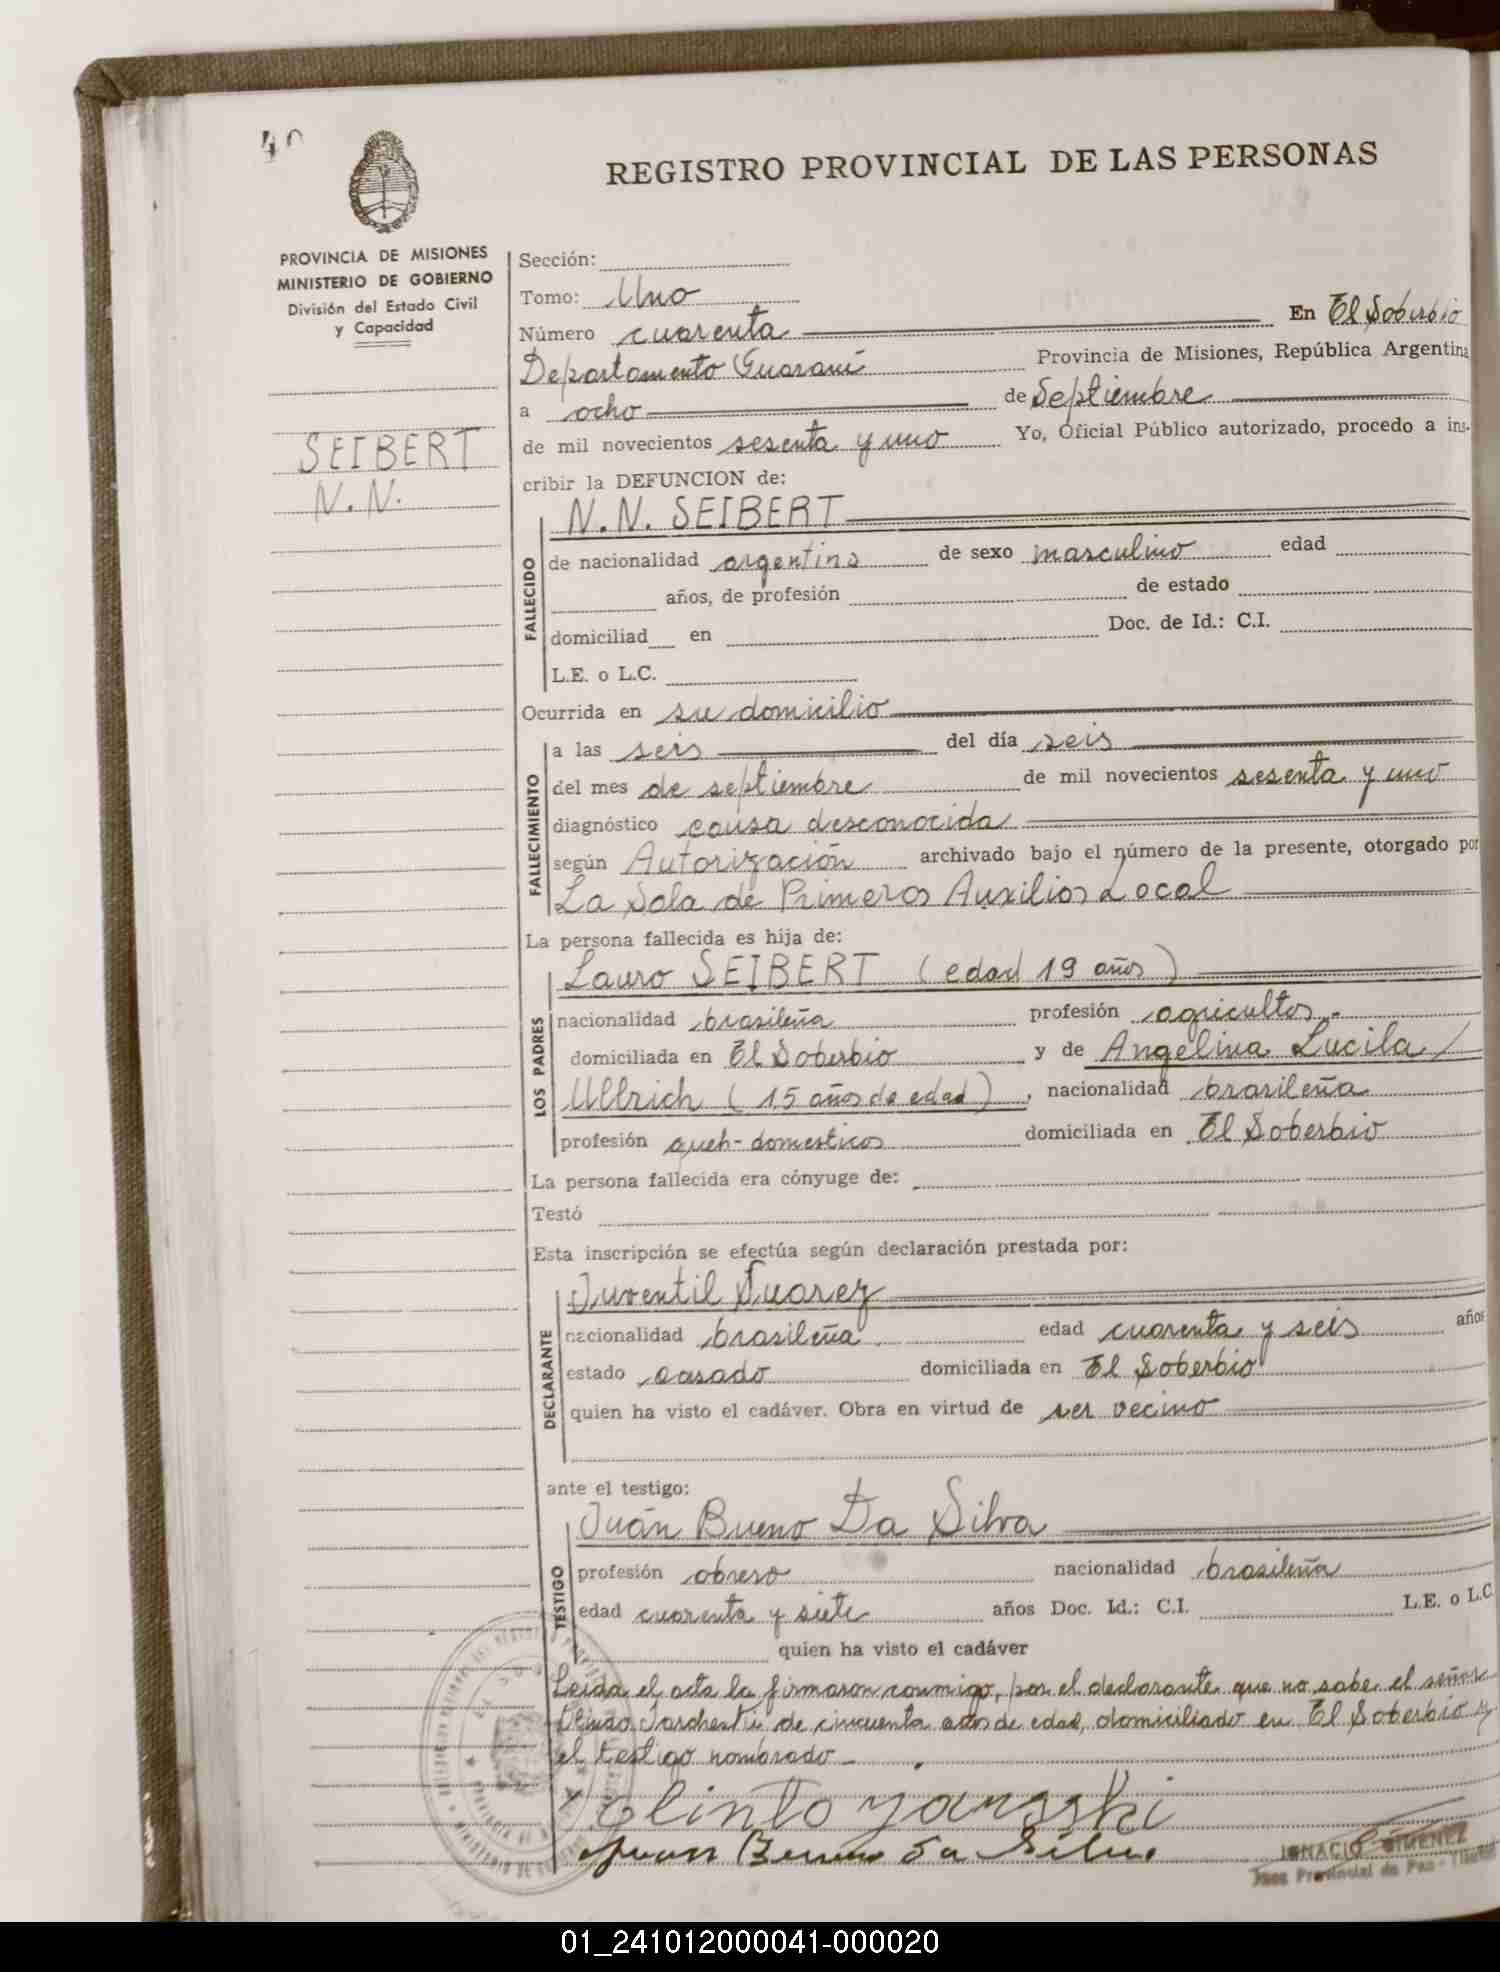 40
REGISTRO PROVINCIAL DE LAS PERSONAS
PROVINCIA DE MISIONES
MINISTERIO DE GOBIERNO
División del Estado Civil
y Capacidad
SEIBERT
N.N.
Sección:
Tomo: Uno
Número cuarenta En El Soberbio
Departamento Guaraní Provincia de Misiones, República Argentina
a ocho de Septiembre
de mil novecientos sesenta y uno Yo, Oficial Público autorizado, procedo a ins-
cribir la DEFUNCION de:
N.N. SEIBERT
FALLECIDO
de nacionalidad argentina de sexo masculino edad
años, de profesión de estado
domiciliad en Doc. de Id.: C.I.
L.E. o L.C.
Ocurrida en su domicilio
FALLECIMIENTO
a las seis del día seis
del mes de septiembre de mil novecientos sesenta y uno
diagnóstico causa desconocida
según Autorización archivado bajo el número de la presente, otorgado por
La Sala de Primeros Auxilios Local
La persona fallecida es hija de:
LOS PADRES
Lauro SEIBERT (edad 19 años)
nacionalidad brasileña profesión agricultor.
domiciliada en El Soberbio y de Angelina Lucila /
Ullrich (15 años de edad), nacionalidad brasileña
profesión queh-domesticos domiciliada en El Soberbio
La persona fallecida era cónyuge de:
Testó
Esta inscripción se efectúa según declaración prestada por:
DECLARANTE
Juventil Suarez
nacionalidad brasileña edad cuarenta y seis años
estado casado domiciliada en El Soberbio
quien ha visto el cadáver. Obra en virtud de ser vecino
ante el testigo:
TESTIGO
Juán Bueno Da Silva
profesión obrero nacionalidad brasileña
edad cuarenta y siete años Doc. Id.: C.I. L.E. o L.C.
quien ha visto el cadáver
Leida el acta la firmaron conmigo, por el declarante que no sabe el señor
de cincuenta años de edad, domiciliado en El Soberbio y
el testigo nombrado
Olinto
Juan Bueno Da Silva
IGNACIO GIMENEZ
Juez Provincial de Paz
01_241012000041-000020